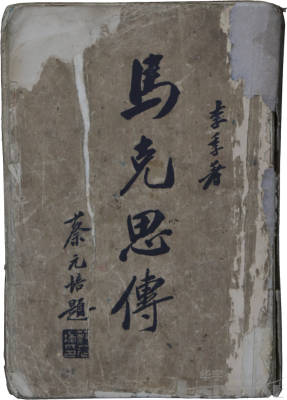 李季著
馬克思傳
蔡元培題